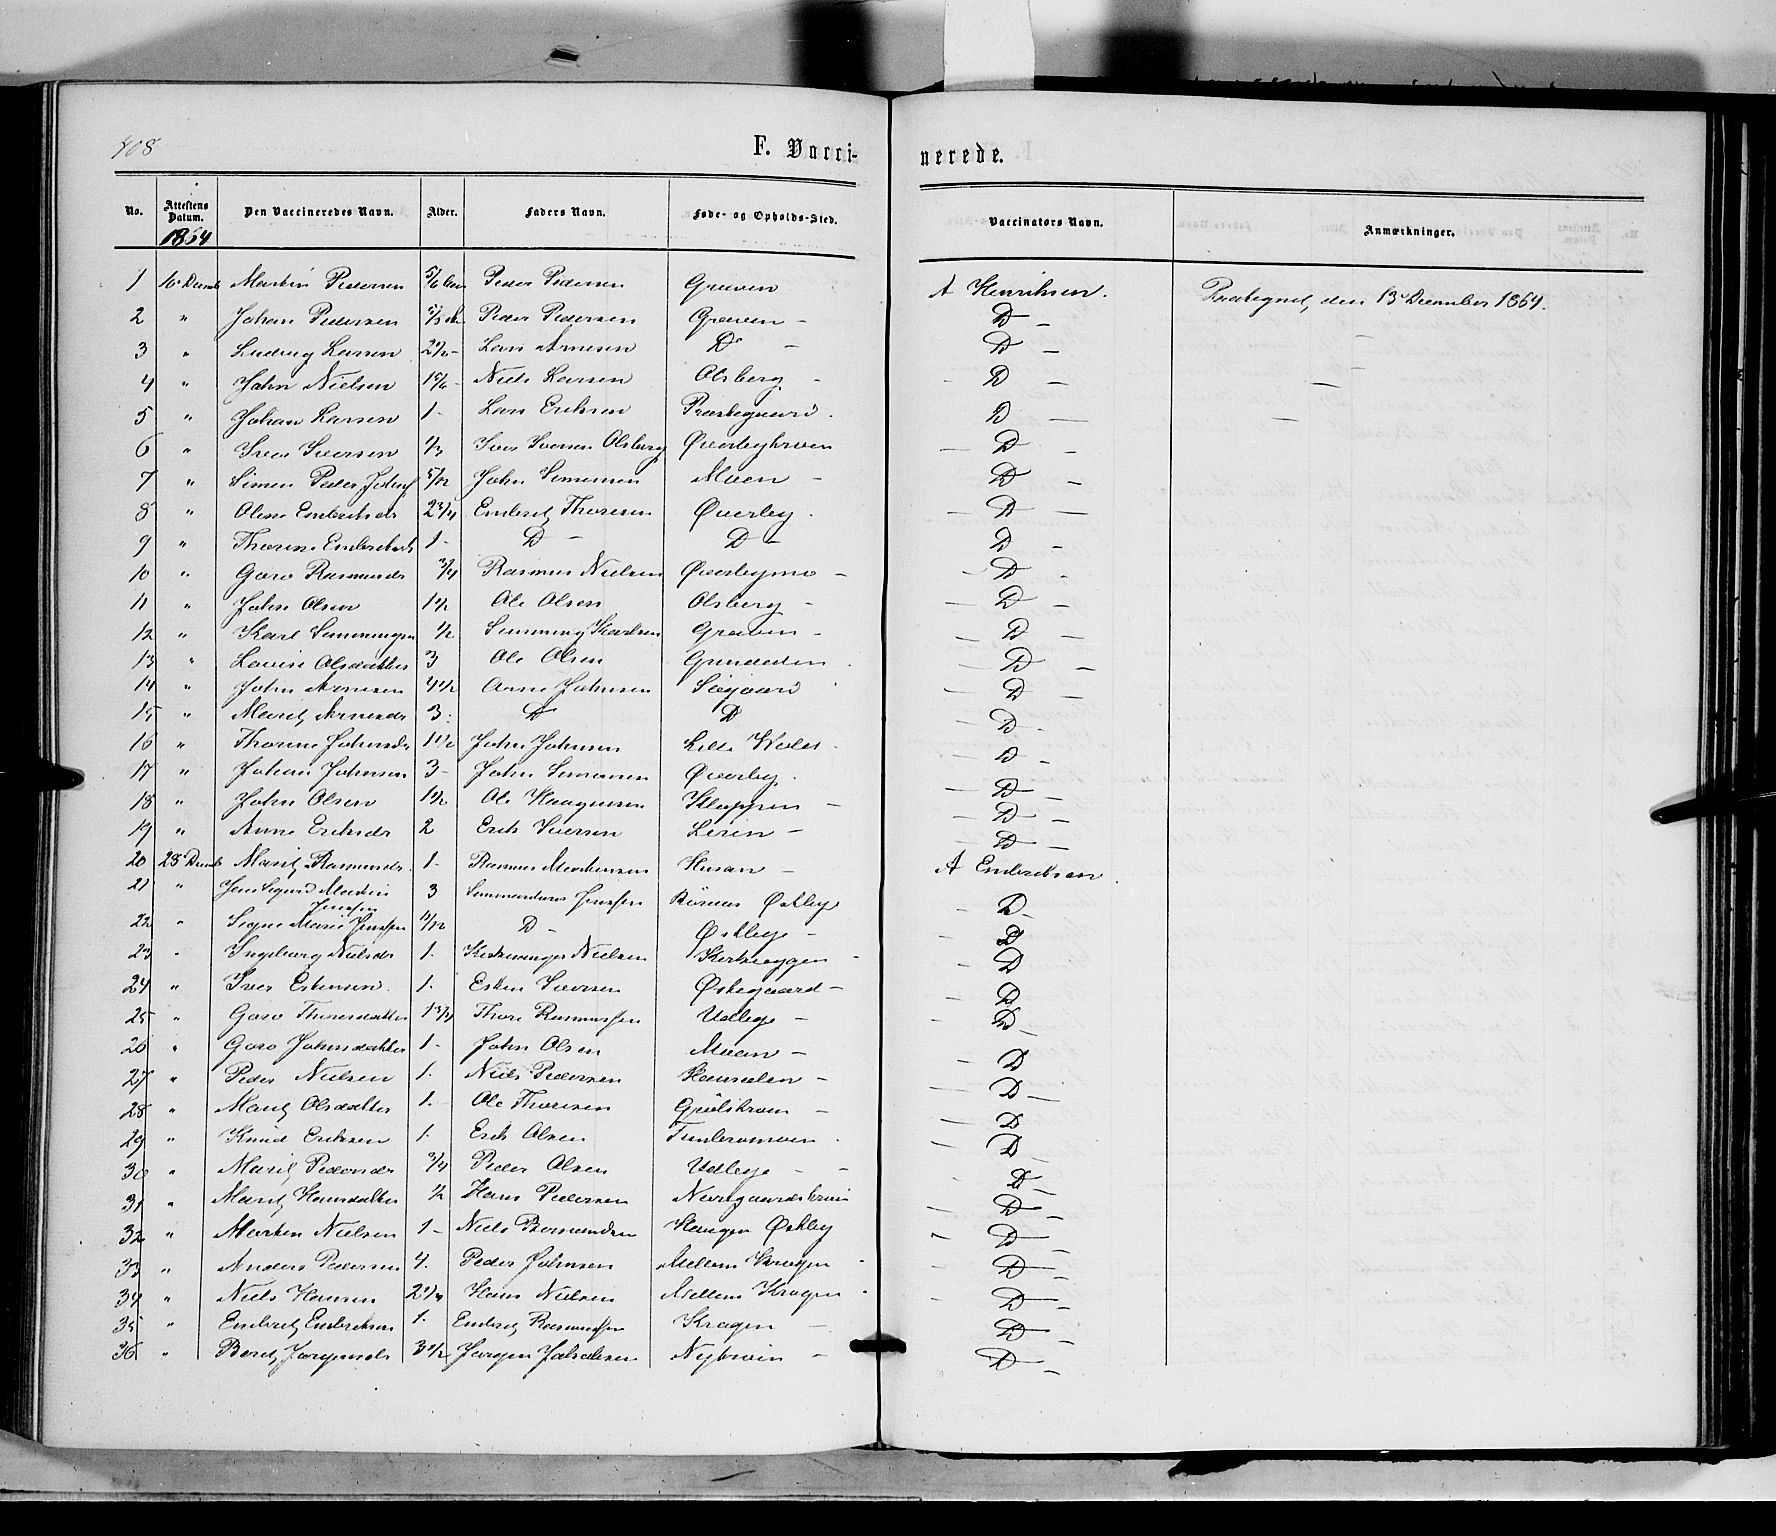 408
F. Vacci-nerede.
No. Attestens Datum. Den Vaccineredes Navn. Alder. Faders Navn. Føde- og Opholds-Sted. Vaccinators Navn. Anmærkninger.
1864
1 10 Decmb Pedersen 5/6 Peder Pedersen Græven A Henriksen. den 13 December 1864.
2 " Johan Pedersen Peder Pedersen Græven - D -
3 " Ludvig Larsen 2 1/2 - Lars Arnesen Do - D -
4 " John Nielsen Niels Larsen Olsberg - - D - -
5 " Johan Larsen 1 - Lars Eriksen Præstegaard. D - -
6 " Iver Iversen 1/3 Iver Iversen Olsberg Øverbykroen - D -
7 " Simen Peder 5/12 John Simensen Moen - - D -
8 " Oline Embretsdr 2 3/4 Embret Thoresen Øverby. - D -
9 " Thorine Embretsdr 1 - D - D - D -
10 " Goro Rasmusdr 3/4 Rasmus Nielsen Øverbymo - - D -
11 " John Olsen 1 1/2 Ole Olsen Olsberg - - D -
12 " Karl Simmingsen 1/2 Simming Karlsen Græven - - D -
13 " Lovise Olsdatter 3 Ole Olsen - D -
14 " John Arnesen 4 1/2 Arne Johnsen Søgaard - D -
15 " Marit Arnesdr 3 D D - D -
16 " Thorine Johnsdr 1 1/2 John Johnsen Lille - D -
17 " Johan Johnsen 3 - John Simensen Øverby. - D -
18 " John Olsen 1 1/2 Ole Haagensen Kleppen - - D -
19 " Anne Eriksdr 2 Erik Iversen - - D -
20 23 Decmb Marit Rasmusdr. 1 - Rasmus Mortensen Husan - A Embretsen.
21 " Jens Sigurd Martin Jenssen 3 Jenssen Østby - D -
22 " Signe Marie Jenssen 11/12 D - Østbye - - D
23 " Ingeborg Nielsdr 1. Nielsen - D
24 " Iver Estensen. 1. Esten Iversen Østegaard - - D -
25 " Goro Thoresdatter 1 3/4 Thore Rasmussen Udbye - - D -
26 " Goro Johnsdatter 1 - John Olsen Moan - - D
27 " Peder Nielsen 1. Niels Pedersen - - D -
28 " Marit Olsdatter 1. Ole Thoresen - - D
29 " Knud Eriksen 1. Erik Olsen - D -
30 " Marit Pedersdr 3/4 Peder Olsen Udbye - - - D -
31 " Marit Hansdatter 1/2 Hans Pedersen - D -
32 " Morten Nielsen 1 - Niels Haugen Østby " D -
33 " Anders Pedersen 4. Peder Johnsen Mellem Kragen - - D -
34 " Niels Hansen Hans Nielsen Mellem Kragen - - D -
35 " Embret Embretsen 1. Embret Rasmussen Kragen - - D -
36 " Berit Jørgensdr 3 1/2 Jørgen Nykroin - - D -